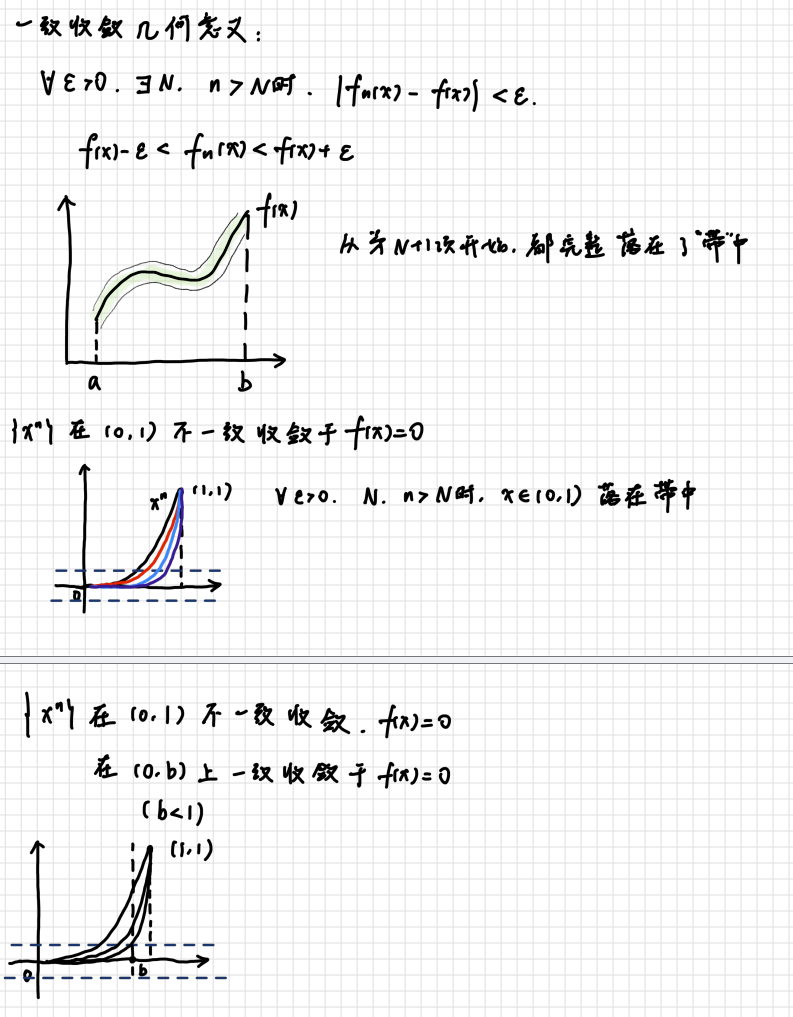 一致收敛几何意义:
∀ε>0. ∃N. n>N时. |fn(x)-f(x)|<ε.
f(x)-ε<fn(x)<f(x)+ε
f(x)
从第N+1项开始,都完整落在了"带"中
a b
{xⁿ}在(0,1)不一致收敛于f(x)=0
xⁿ (1,1)
∀ε>0. N. n>N时. x∈(0,1)落在带中
0
{xⁿ}在(0.1)不一致收敛.f(x)=0
在(0.b)上一致收敛于f(x)=0
(b<1)
(1.1)
0 b